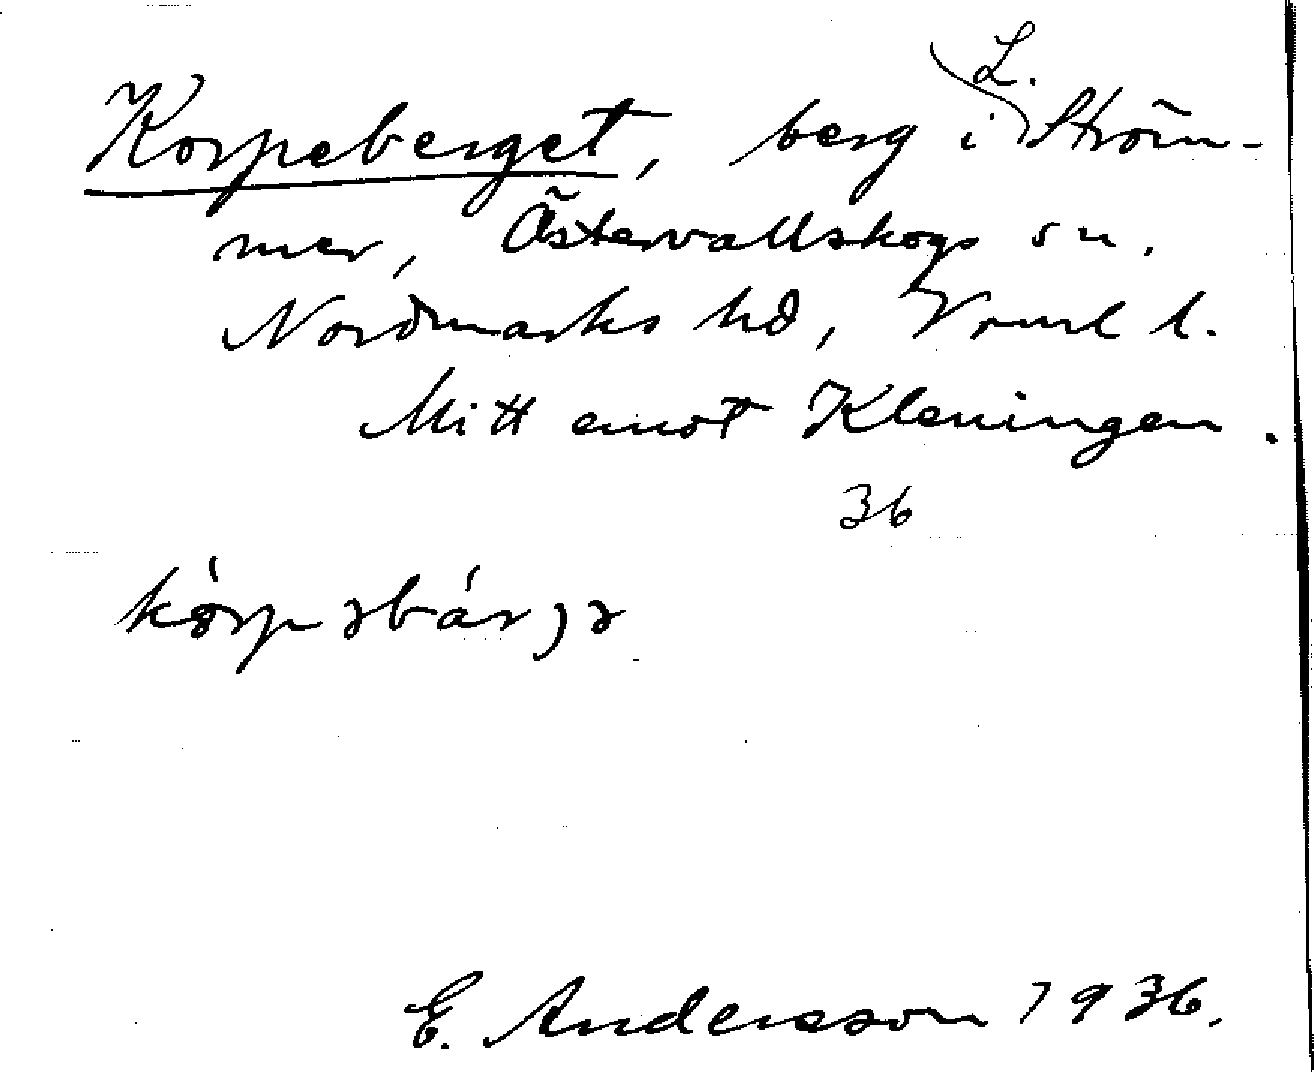 Korpeberget, berg i L. Ström-
mer, Östervallskogs sn.
Nordmarks hd, Vrml l.
Mitt emot Kleningen.
36
E. Andersson 1936.